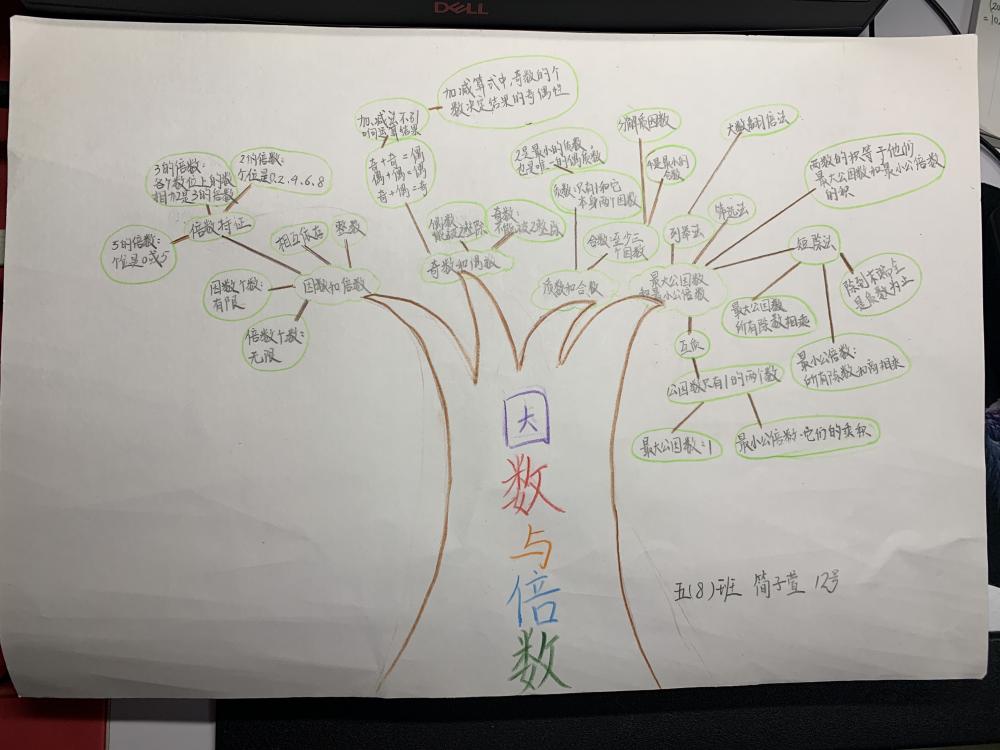 DELL
加减算式中,奇数的个
数决定结果的奇偶性
加减法不影
响运算结果
奇+奇=偶
偶+偶=偶
奇+偶=奇
3的倍数:
各个数位上的数
相加是3的倍数
2的倍数:
个位是0.2.4.6.8
5的倍数:
个位是0或5
倍数特证
相互依存
整数
因数个数:
有限
因数和倍数
倍数个数:
无限
偶数:
能被2整除
奇数:
不能被2整除
奇数和偶数
2是最小的质数,
也是唯一的偶质数
质数:只有1和它
本身两个因数
分解质因数
4是最小的
合数
合数:至少三
个因数
质数和合数
大数翻倍法
筛选法
列举法
两数的积等于他们
最大公因数和最小公倍数
的积
短除法
最大公因数
和最小公倍数
最大公因数
所有除数相乘
除到末端只
是质数为止
最小公倍数:
所有除数和商相乘
互质
公因数只有1的两个数
最大公因数=1
最小公倍数=它们的乘积
因
数
与
倍
数
五(8)班 简子萱 12号